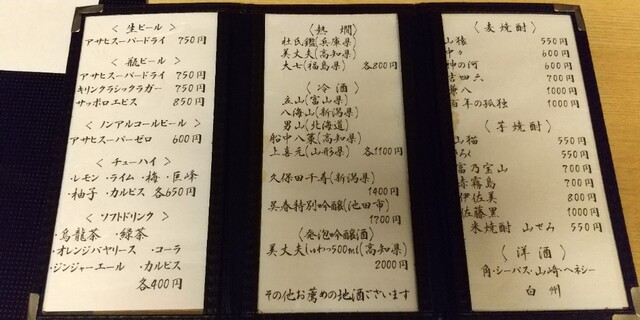 〈生ビール〉
アサヒスーパードライ 750円
〈瓶ビール〉
アサヒスーパードライ 750円
キリンクラシックラガー 750円
サッポロエビス 850円
〈ノンアルコールビール〉
アサヒスーパーゼロ 600円
〈チューハイ〉
・レモン・ライム・梅・巨峰
・柚子・カルピス 各650円
〈ソフトドリンク〉
・烏龍茶 ・緑茶
・オレンジバヤリース ・コーラ
・ジンジャーエール ・カルピス
各400円
〈熱燗〉
杜氏鑑(兵庫県)
美丈夫(高知県)
大七(福島県) 各800円
〈冷酒〉
立山(富山県)
八海山(新潟県)
男山(北海道)
船中八策(高知県)
上喜元(山形県) 各1100円
久保田千寿(新潟県)
1400円
呉春特別吟醸(池田市)
1700円
〈発泡吟醸酒〉
美丈夫しゅわっ500ml(高知県)
2000円
その他お薦めの地酒ございます
〈麦焼酎〉
山猿 550円
中々 600円
神の河 600円
吉四六 700円
兼八 1000円
百年の孤独 1000円
〈芋焼酎〉
山猫 550円
550円
富乃宝山 700円
赤霧島 700円
伊佐美 800円
佐藤黒 1000円
米焼酎 山せみ 550円
〈洋酒〉
角・シーバス・山崎・ヘネシー
白州